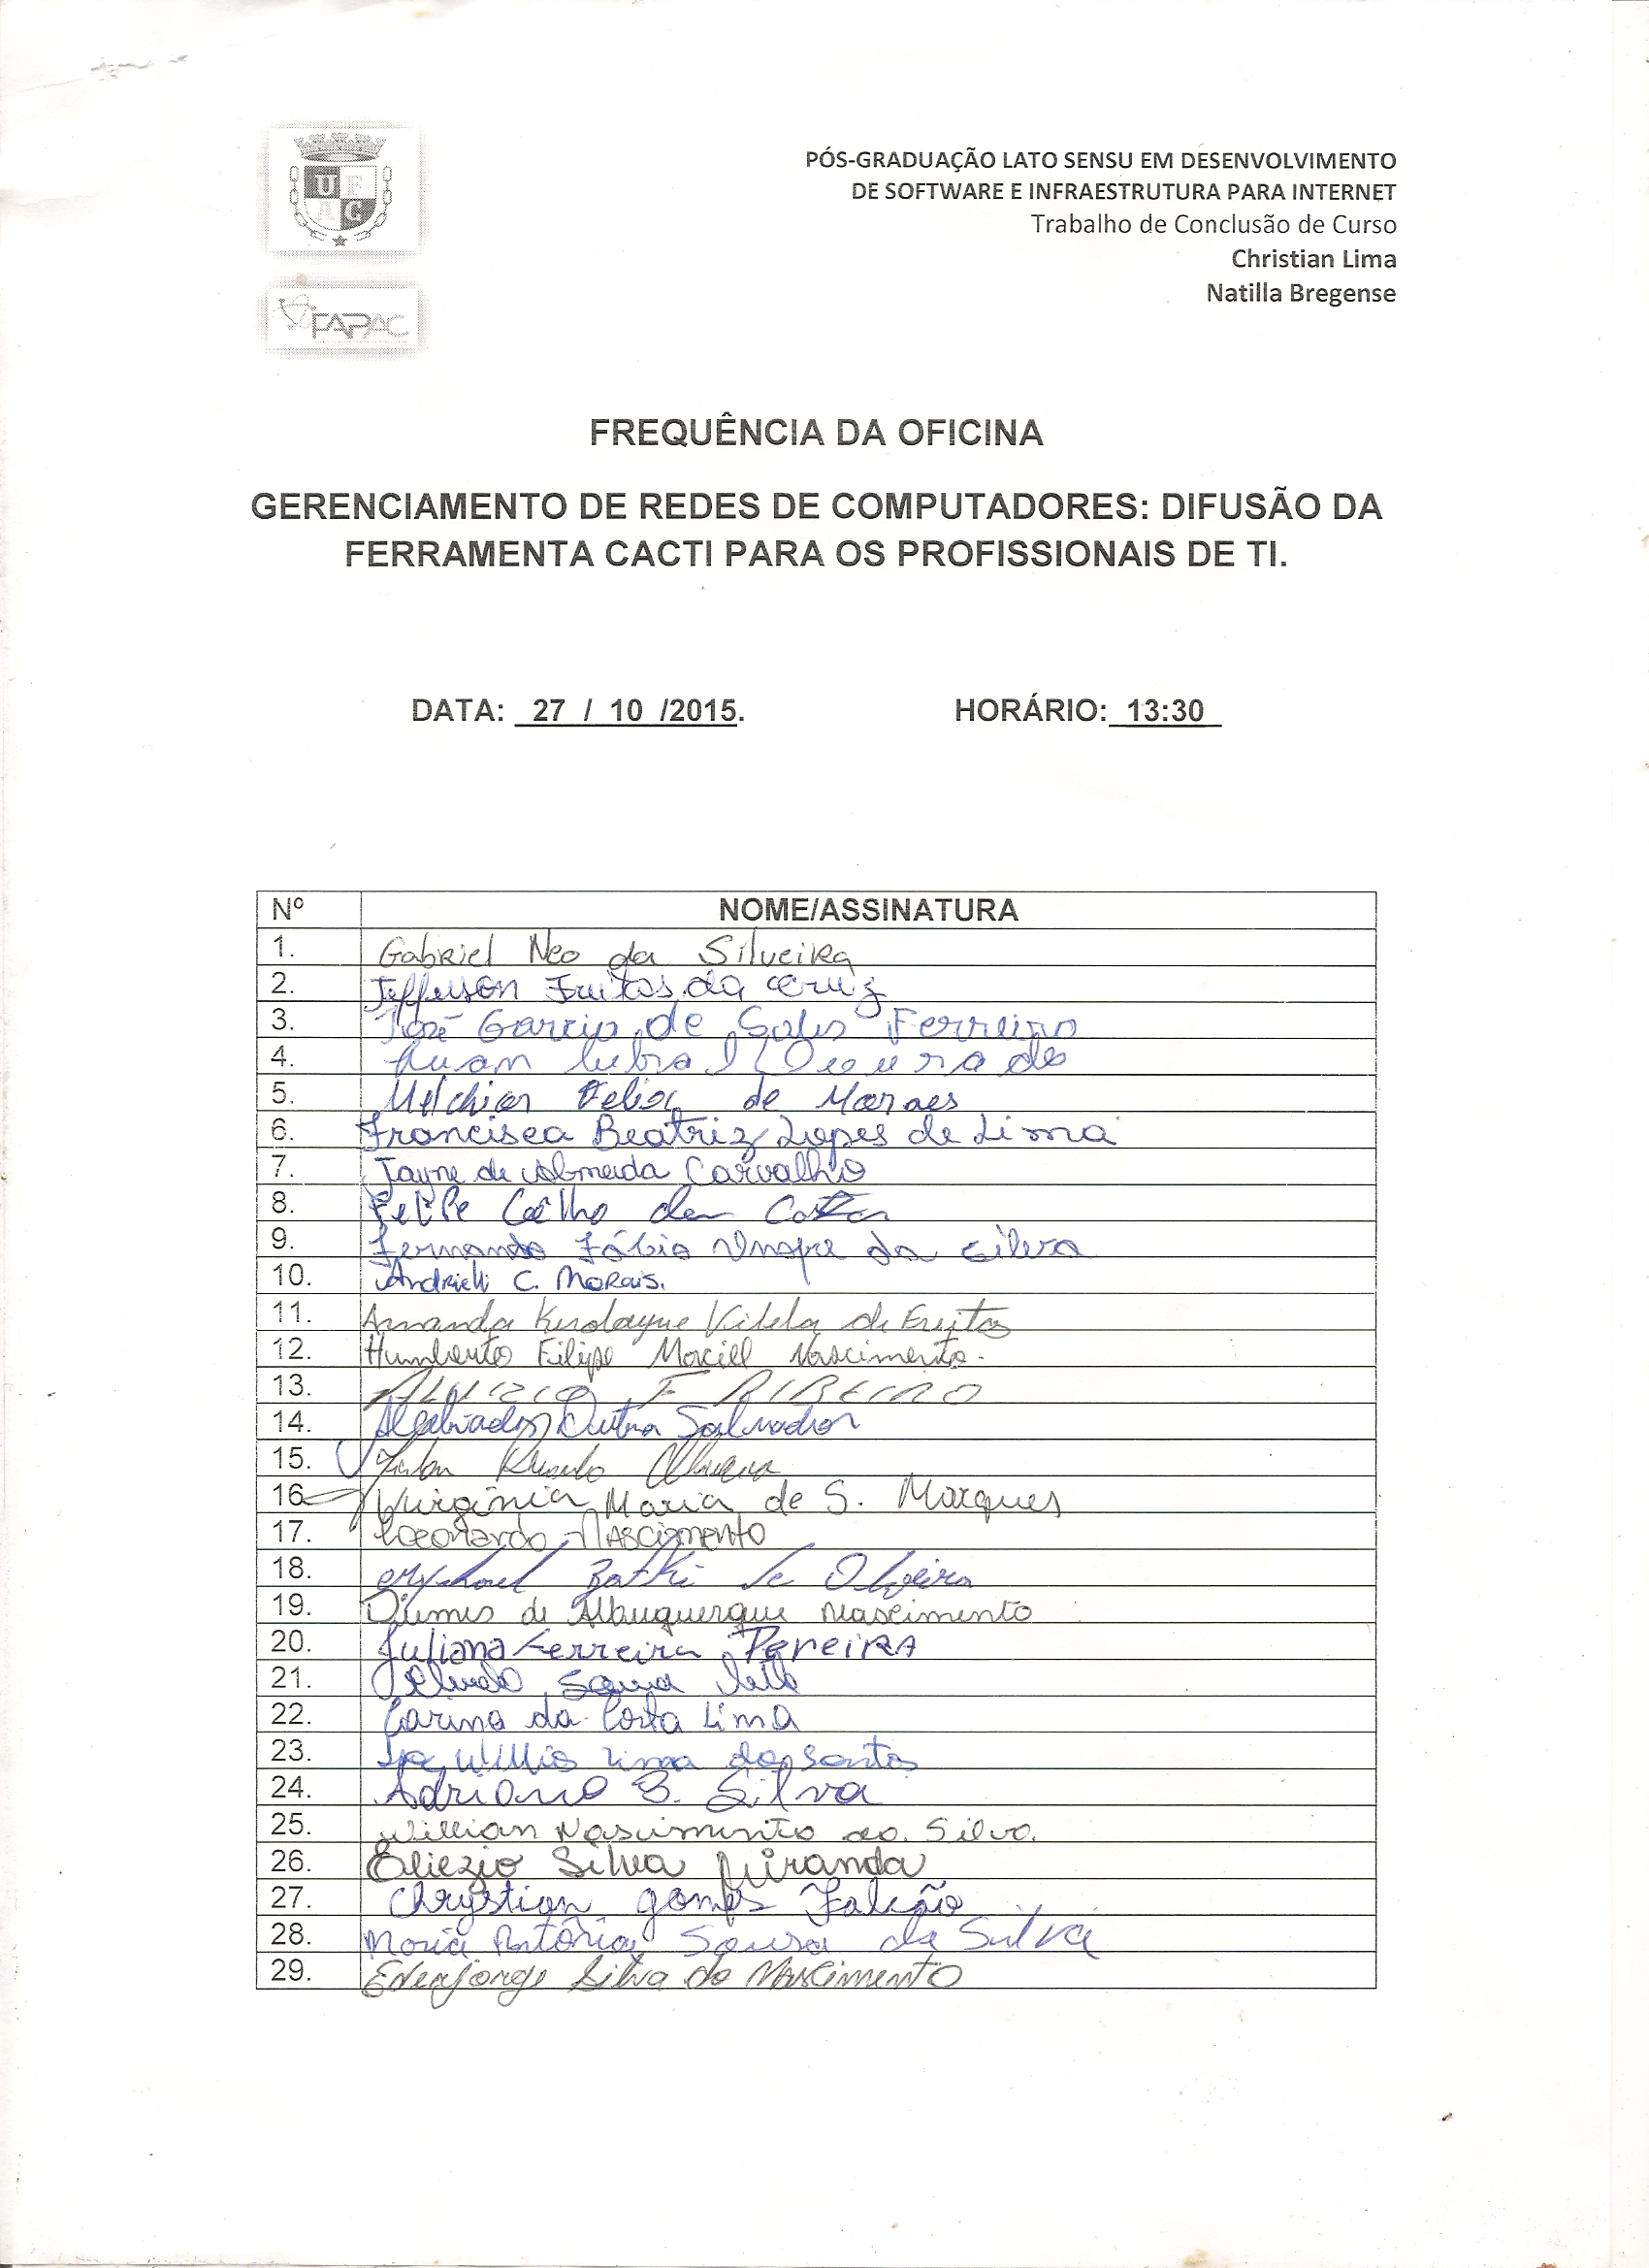 UFAC
FAPAC
PÓS-GRADUAÇÃO LATO SENSU EM DESENVOLVIMENTO
DE SOFTWARE E INFRAESTRUTURA PARA INTERNET
Trabalho de Conclusão de Curso
Christian Lima
Natilla Bregense
FREQUÊNCIA DA OFICINA
GERENCIAMENTO DE REDES DE COMPUTADORES: DIFUSÃO DA
FERRAMENTA CACTI PARA OS PROFISSIONAIS DE TI.
DATA: 27 / 10 /2015. HORÁRIO: 13:30
Nº NOME/ASSINATURA
1. Gabriel Neo da Silveira
2. Jefferson Freitas da Cruz
3. José Garcip de Sales Ferreira
4. Luan
5. Melchior Felix de Moraes
6. Francisca Beatriz Lopes de Lima
7. Jayne de Almeida Carvalho
8. Felipe Coêlho da Costa
9. Fernando Fábio da Silva
10. Andrieli C. Morais.
11. Amanda Vilela de Freitas
12. Humberto Filipe Maciel Nascimento.
13. ALUIZIO F RIBEIRO
14. Alcebiades Dutra Salvador
15. Oliveira
16. Virgínia Maria de S. Marques
17. Leonardo Nascimento
18. de Oliveira
19. de Albuquerque Nascimento
20. Juliana Ferreira Pereira
21. Souza
22. Carina da Costa Lima
23. Willis Lima dos Santos
24. Adriano B. Silva
25. Willian Nascimento da Silva.
26. Eliezio Silva Miranda
27. Chrystian Gomes Falcão
28. Maria Antônia Sousa da Silva
29. Silva do Nascimento